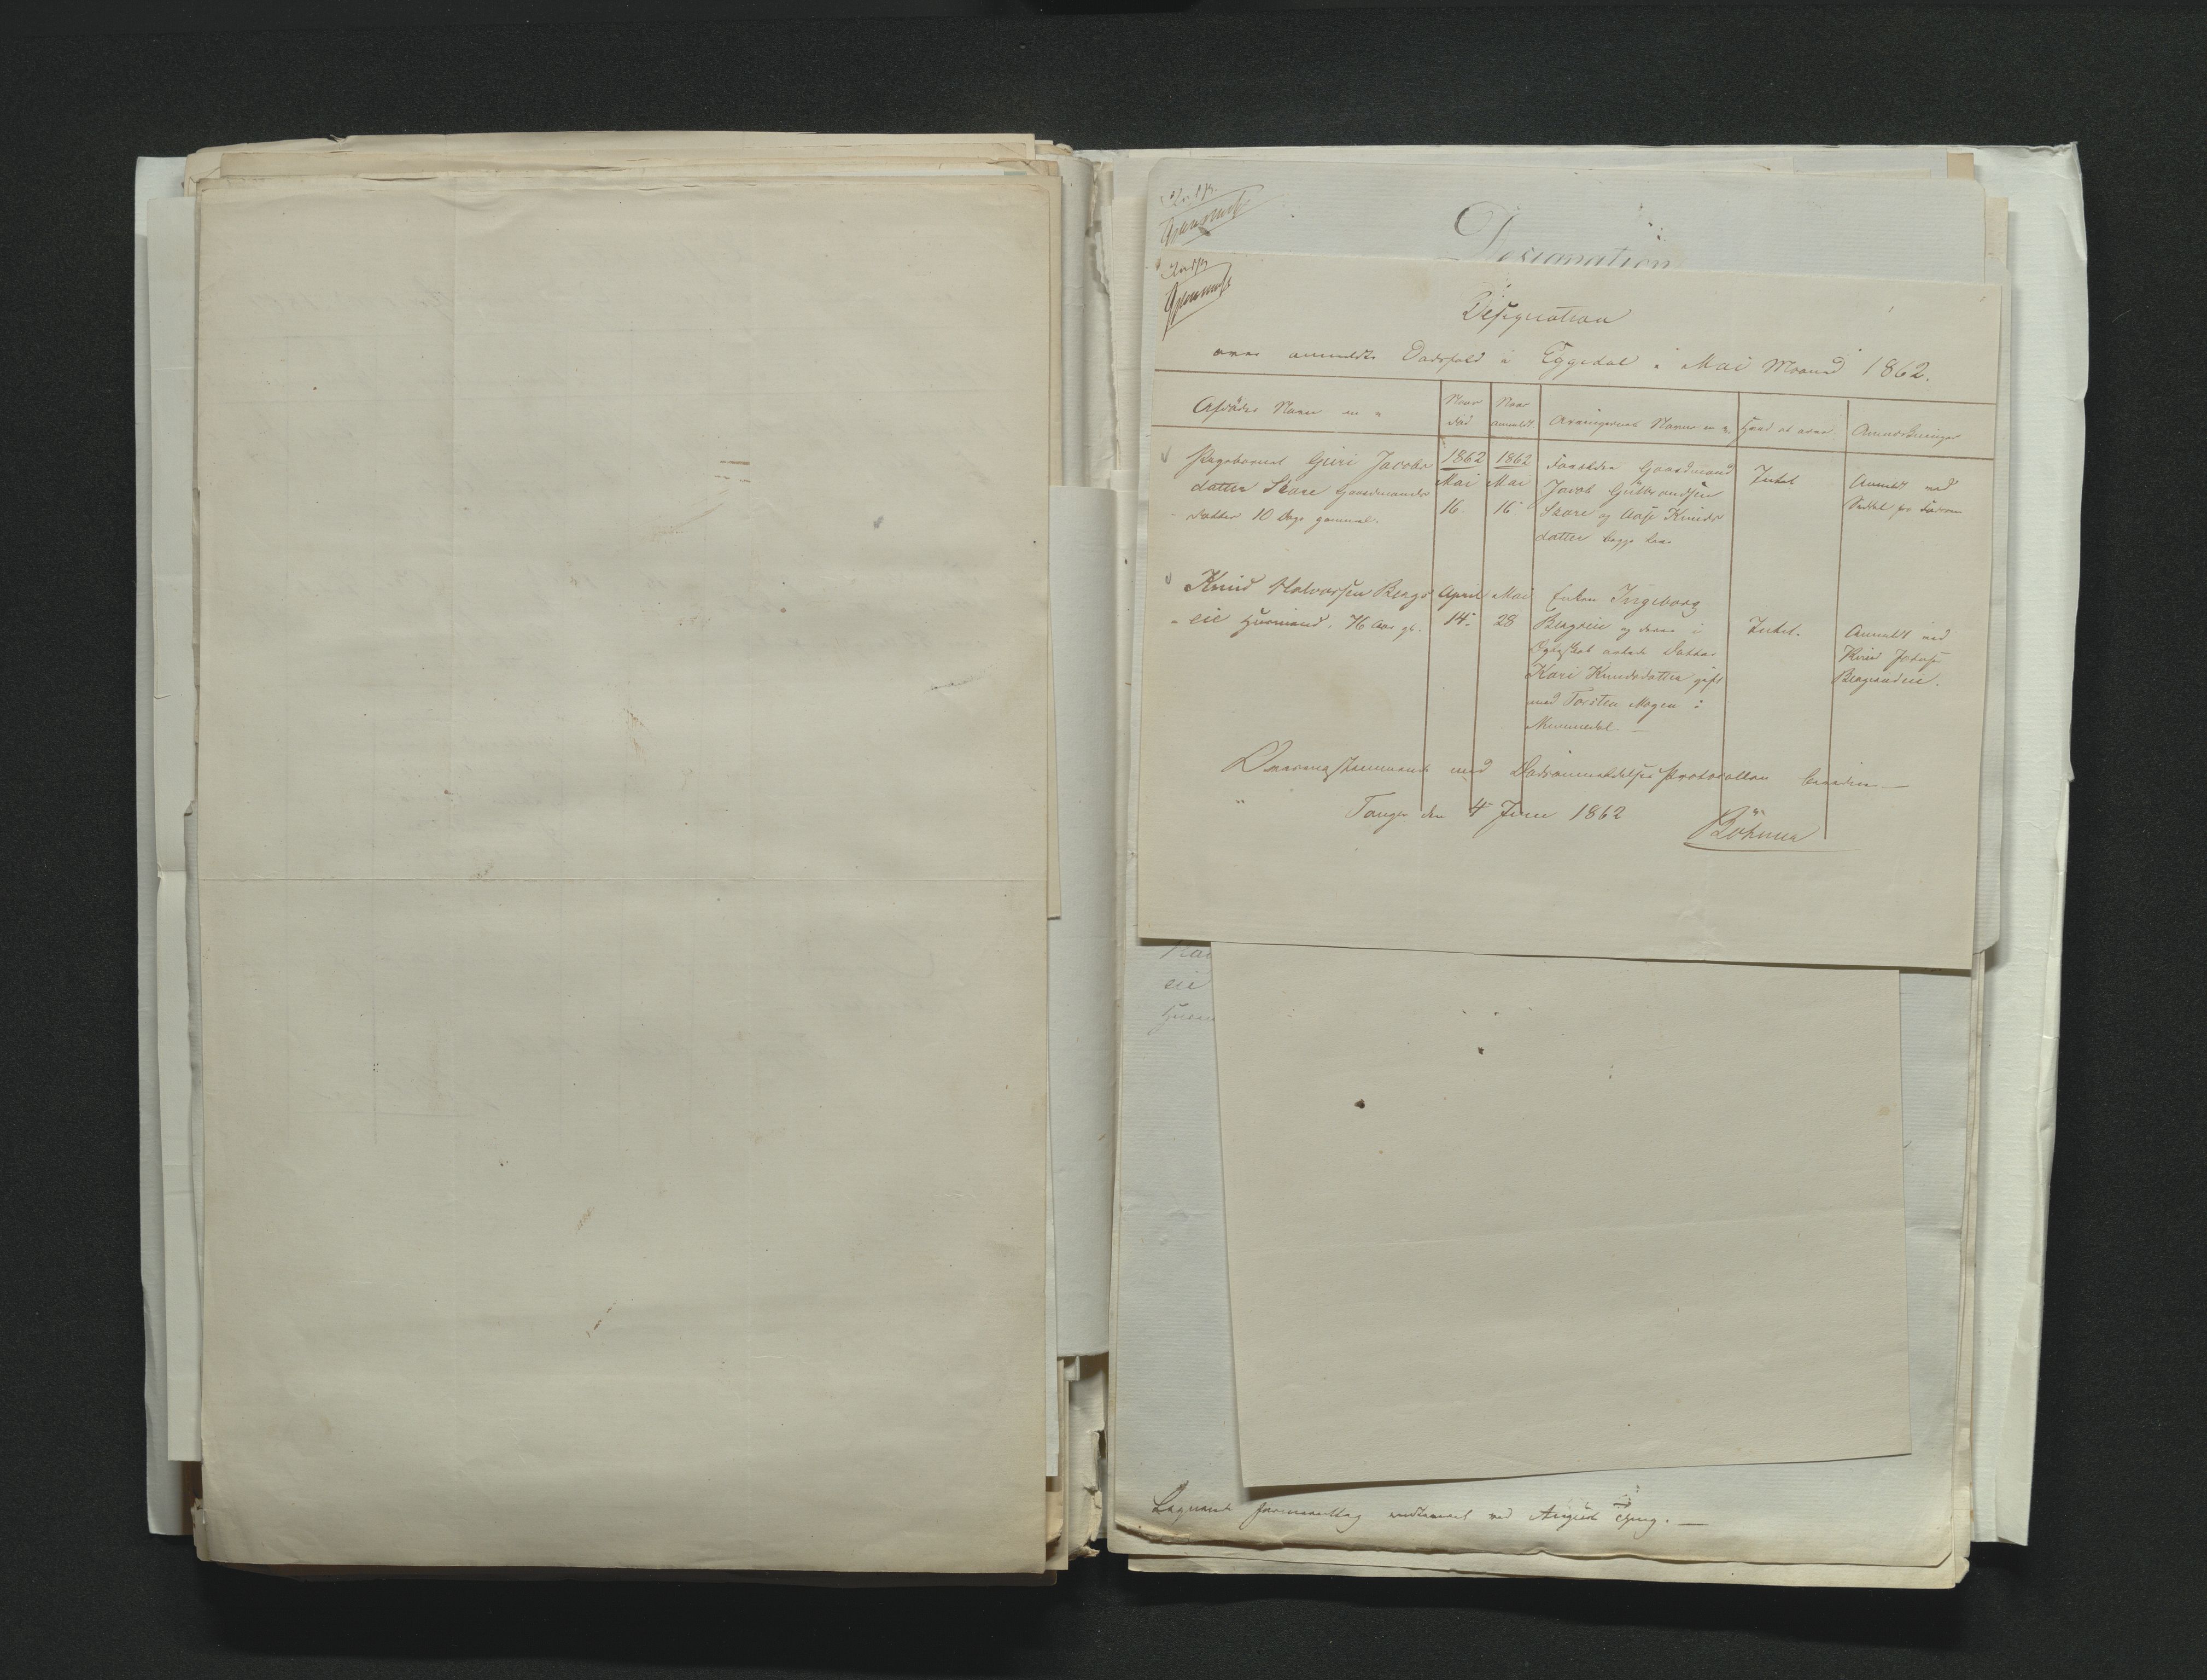 Designation
Designation
over anmeldte Dødsfald i Eggedal i Mai Maaned 1862.
Afdødes Navn m. v.
Naar død
Naar anmeldt.
Arvingernes Navne m. v.
Hvad at arve
Anmærkninger
Pigebarnet Guri Jacobs
datter Skare Gaardmands
datter 10 Dage gammel.
1862
Mai
16.
1862
Mai
16
Forældre Gaardmand
Jacob Gulbrandsen
Skare og Aase Knuds
datter begge
Intet
Anmeldt ved
Seddel fra Faderen
Knud Halvorsen Bergs
eie Huusmand. 76 Aar gl.
April
14.
Mai
28
Enken Ingeborg
Bergseie og deres i
Ægteskab avlede Datter
Kari Knudsdatter gift
med Torsten Mogen i
Numedal
Intet.
Anmeldt ved
Knud
Overensstemmende med Dødsanmeldelses Protocollen bevidnes
den 4 Juni 1862
Böhmer
eie
ved August